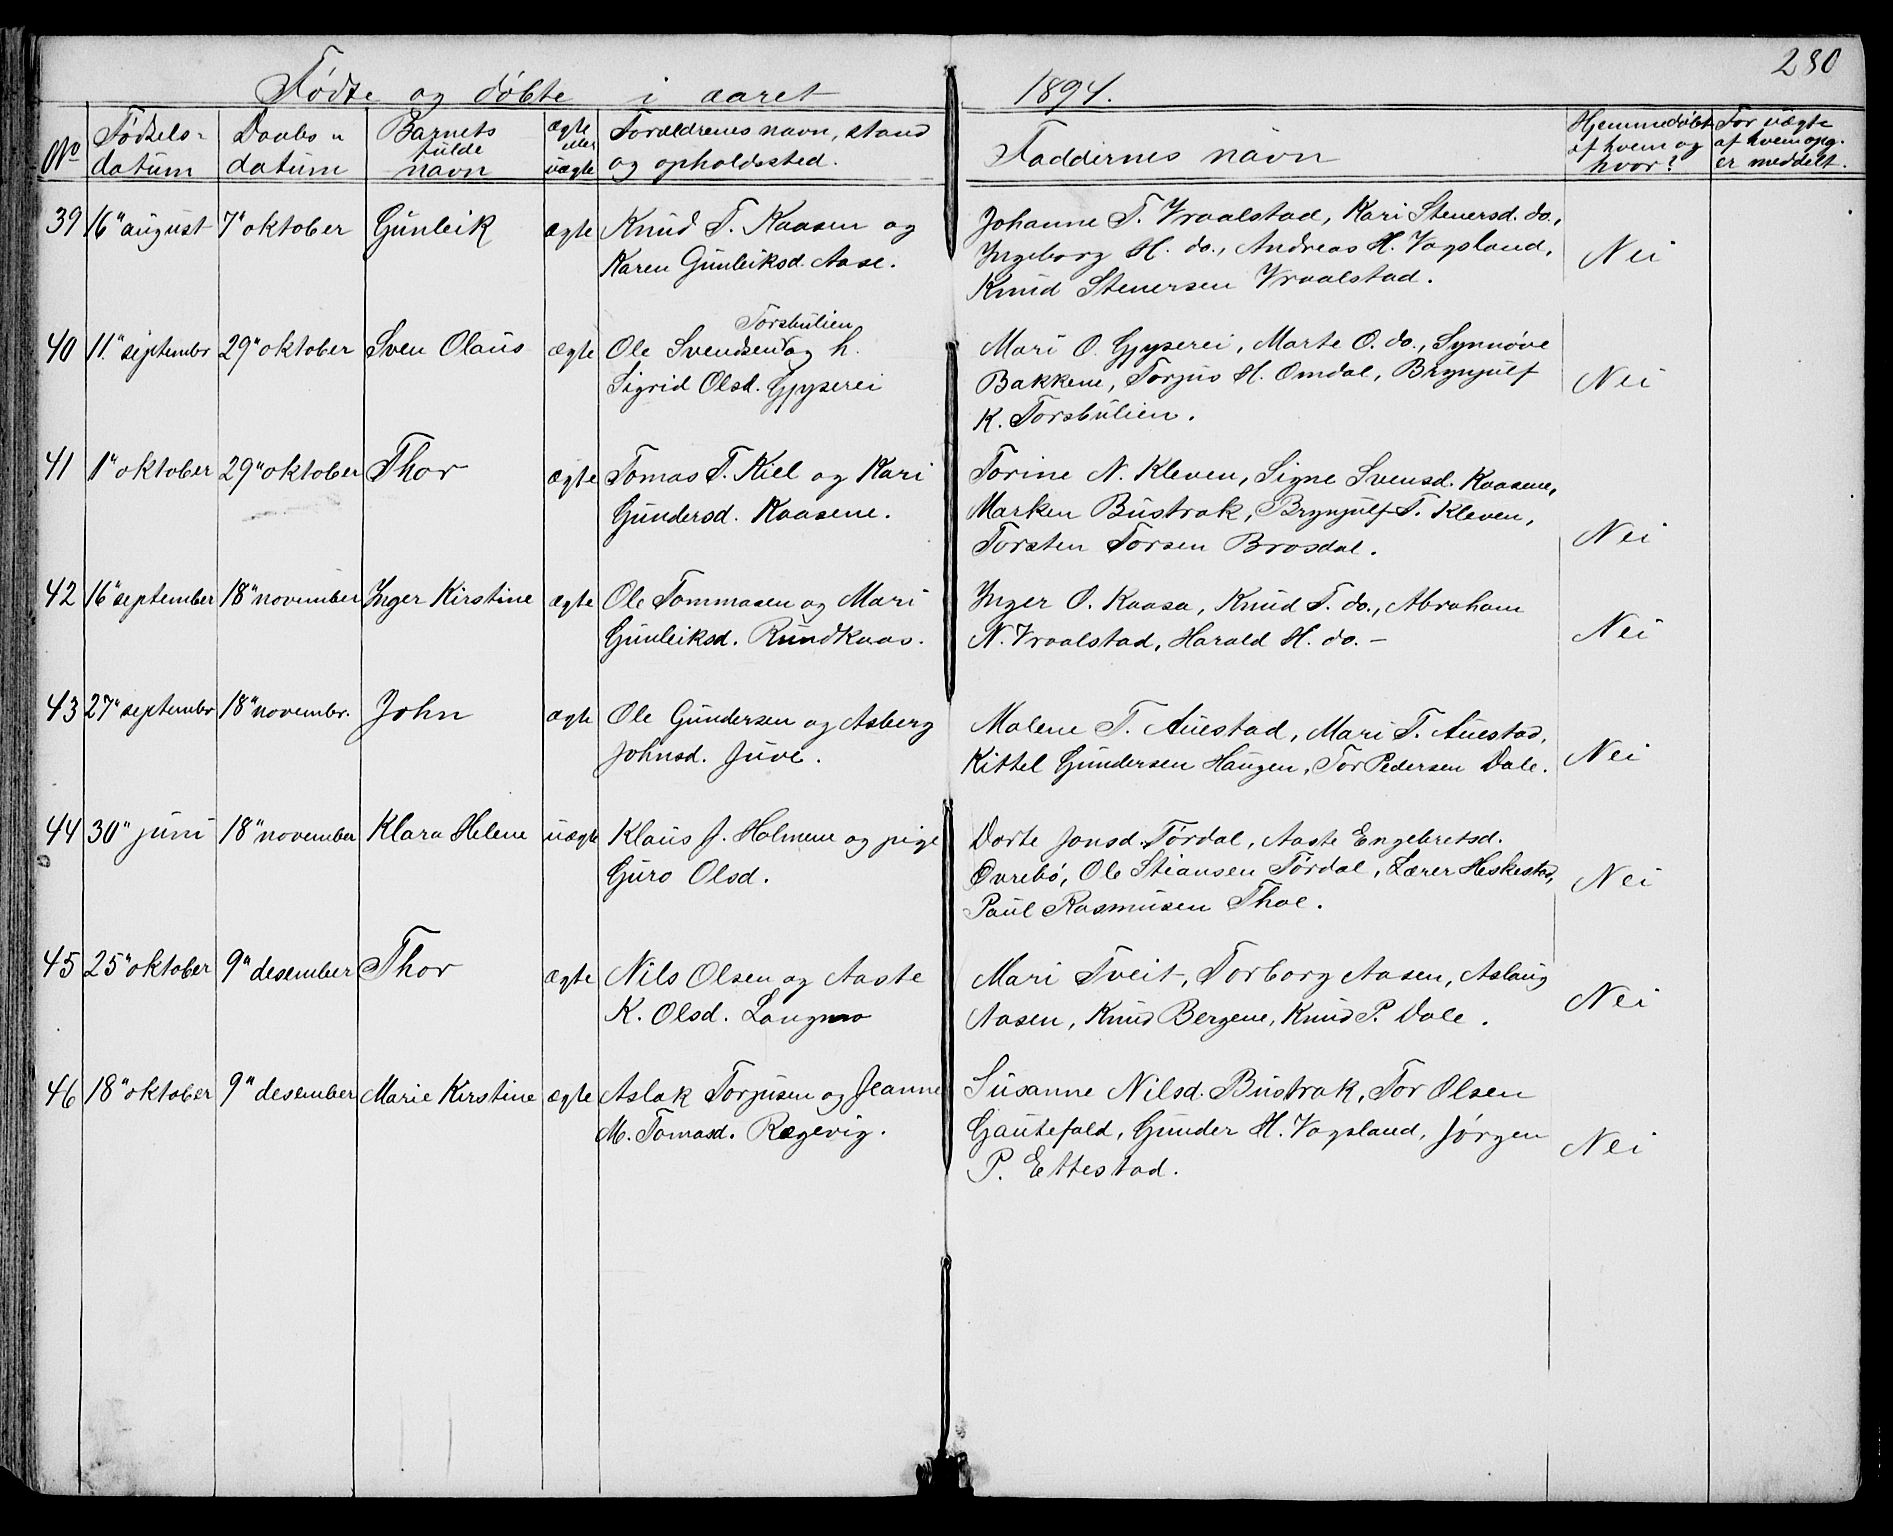 280
Fødte og døbte i aaret 1894.
No Fødsels-datum Daabs-datum Barnets fulde navn ægte eller uægte Forældrenes navn, stand og opholdssted. Faddernes navn Hjemmedøbt af hvem og hvor? For uægte af hvem opg. er meddelt.
39 16" august 7" oktober Gunleik ægte Knud T. Kaasen og
Karen Gunleiksd. Aase.
Johanne T. Vraalstad, Kari Stenersd. do.,
Ingeborg H. do., Andreas H. Vagsland,
Knud Stenersen Vraalstad.
Nei
40 11" septembr 29" oktober Sven Olaus ægte Ole Svendsen Torsbulien og h.
Sigrid Olsd. Gjyserei
Mari O. Gjyserei, Marte O. do., Synnøve
Bakkene, Torjus H. Omdal, Brynjulf
K. Torsbulien.
Nei
41 1" oktober 29" oktober Thor ægte Tomas T. Kiel og Kari
Gundersd. Kaasene.
Torine N. Kleven, Signe Svensd. Kaasene,
Marken Bustrak, Brynjulf T. Kleven,
Torsten Torsen Brosdal.
Nei
42 16" september 18" november Inger Kirstine ægte Ole Tommasen og Mari
Gunleiksd. Rundkaas.
Inger O. Kaasa, Knud T. do., Abraham
N. Vraalstad, Harald H. do. -
Nei
43 27" septembr 18" novembr. John ægte Ole Gundersen og Asberg
Johnsd. Juve.
Malene T. Auestad, Mari T. Auestad,
Kittel Gundersen Haugen, Tor Pedersen Dale.
Nei
44 30" juni 18" november Klara Helene uægte Klaus J. Holmene og pige
Guro Olsd.
Dorte Jonsd. Tørdal, Aaste Engebretsd.
Øvrebø, Ole Stiansen Tørdal, Lærer Heskestad,
Paul Rasmusen Thoe.
Nei
45 25" oktober 9" desember Thor ægte Nils Olsen og Aaste
K. Olsd. Langmo
Mari Tveit, Torborg Aasen, Aslaug
Aasen, Knud Bergene, Knud P. Dale.
Nei
46 18" oktober 9" desember Marie Kirstine ægte Aslak Torjusen og Jeanne
M. Tomasd. Rægevig.
Susanne Nilsd. Bustrak, Tor Olsen
Gautefald, Gunder H. Vagsland, Jørgen
P. Ettestad.
Nei